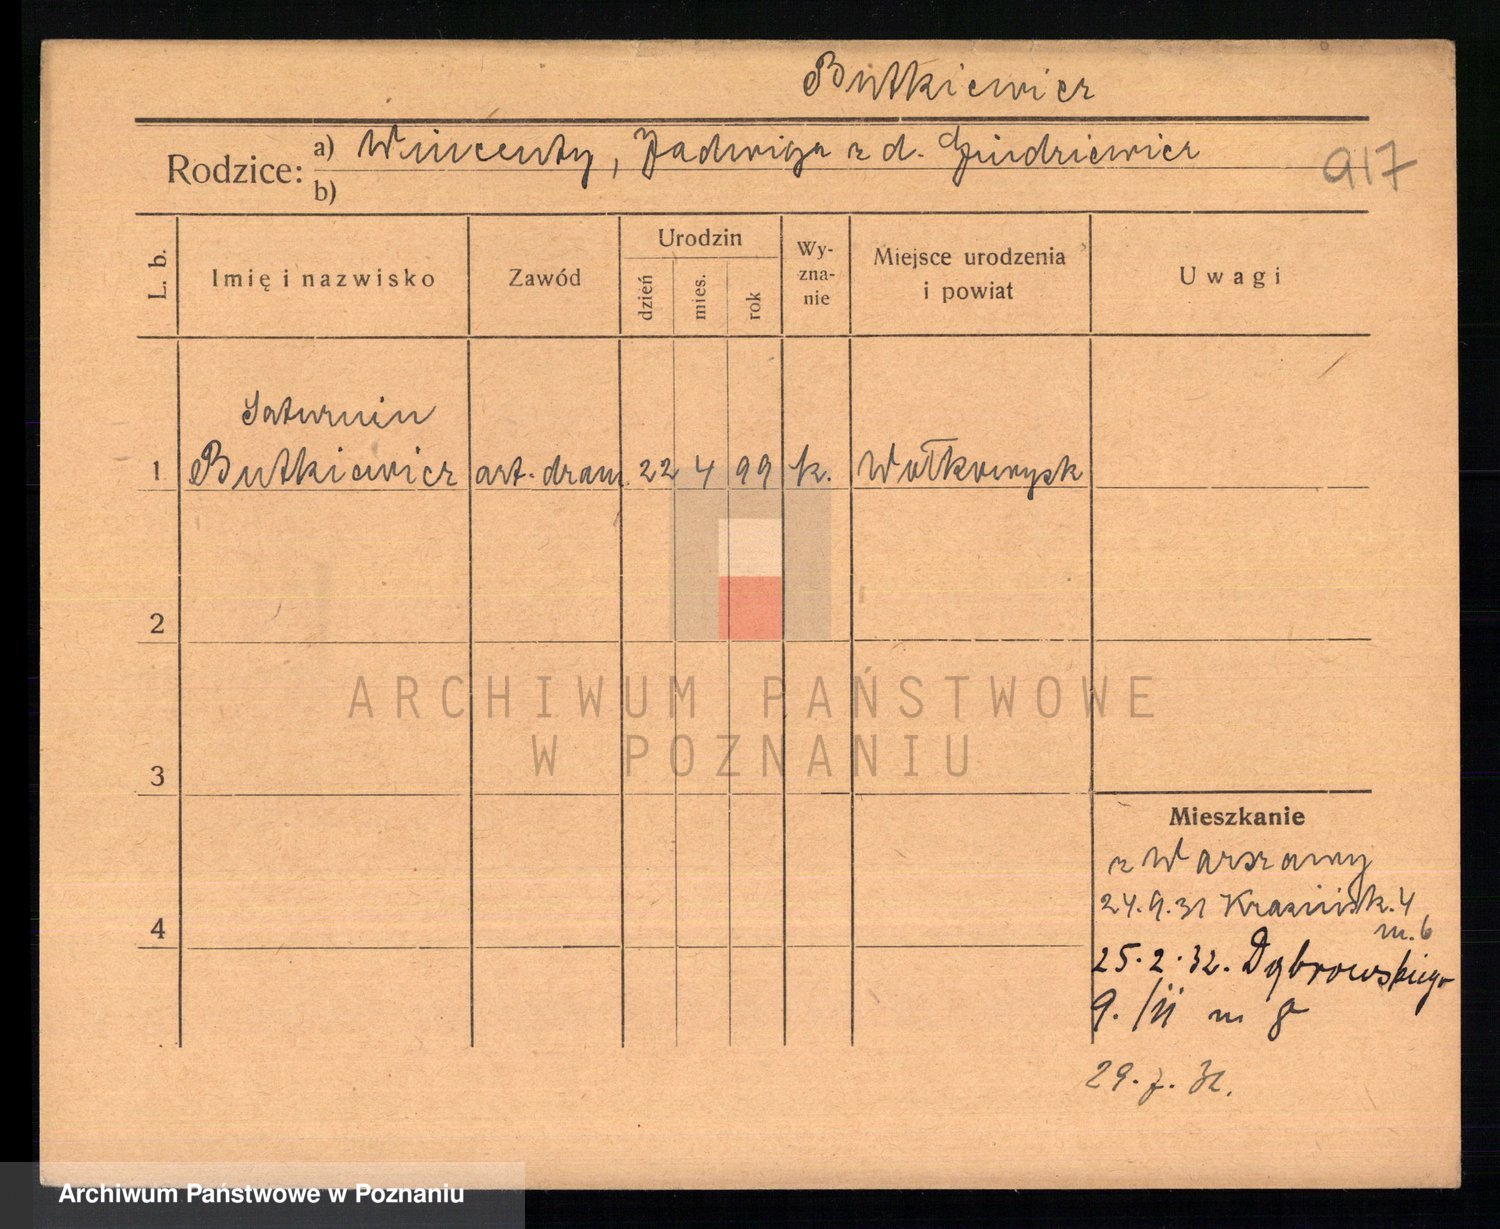 Butkiewicz
Rodzice: a) Wincenty, Jadwiga z d.
b)
917
L. b.
Imię i nazwisko
Zawód
Urodzin
dzień
mies.
rok
Wy-
zna-
nie
Miejsce urodzenia
i powiat
Uwagi
Saturnin
1 Butkiewicz art. dram. 22 4 99 k. Wołkowysk
2
ARCHIWUM PAŃSTWOWE
W POZNANIU
3
Mieszkanie
z Warszawy
24.9.31 Krasińsk. 4
m. 6
4
25.2.32. Dąbrowskiego
9./II m
29.7.32.
Archiwum Państwowe w Poznaniu